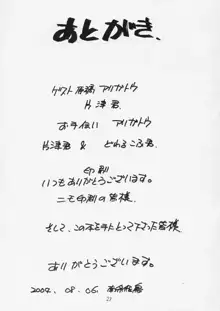 あとがき.
ゲスト原稿 アリガトウ
片津君.
お手伝い アリガトウ
片津君 & どれみころ君
印刷
いつもありがとうございます.
二毛印刷の皆様
そして、この本を手にとって下さった皆様
ありがとうございます.
2004. 08. 06.
23